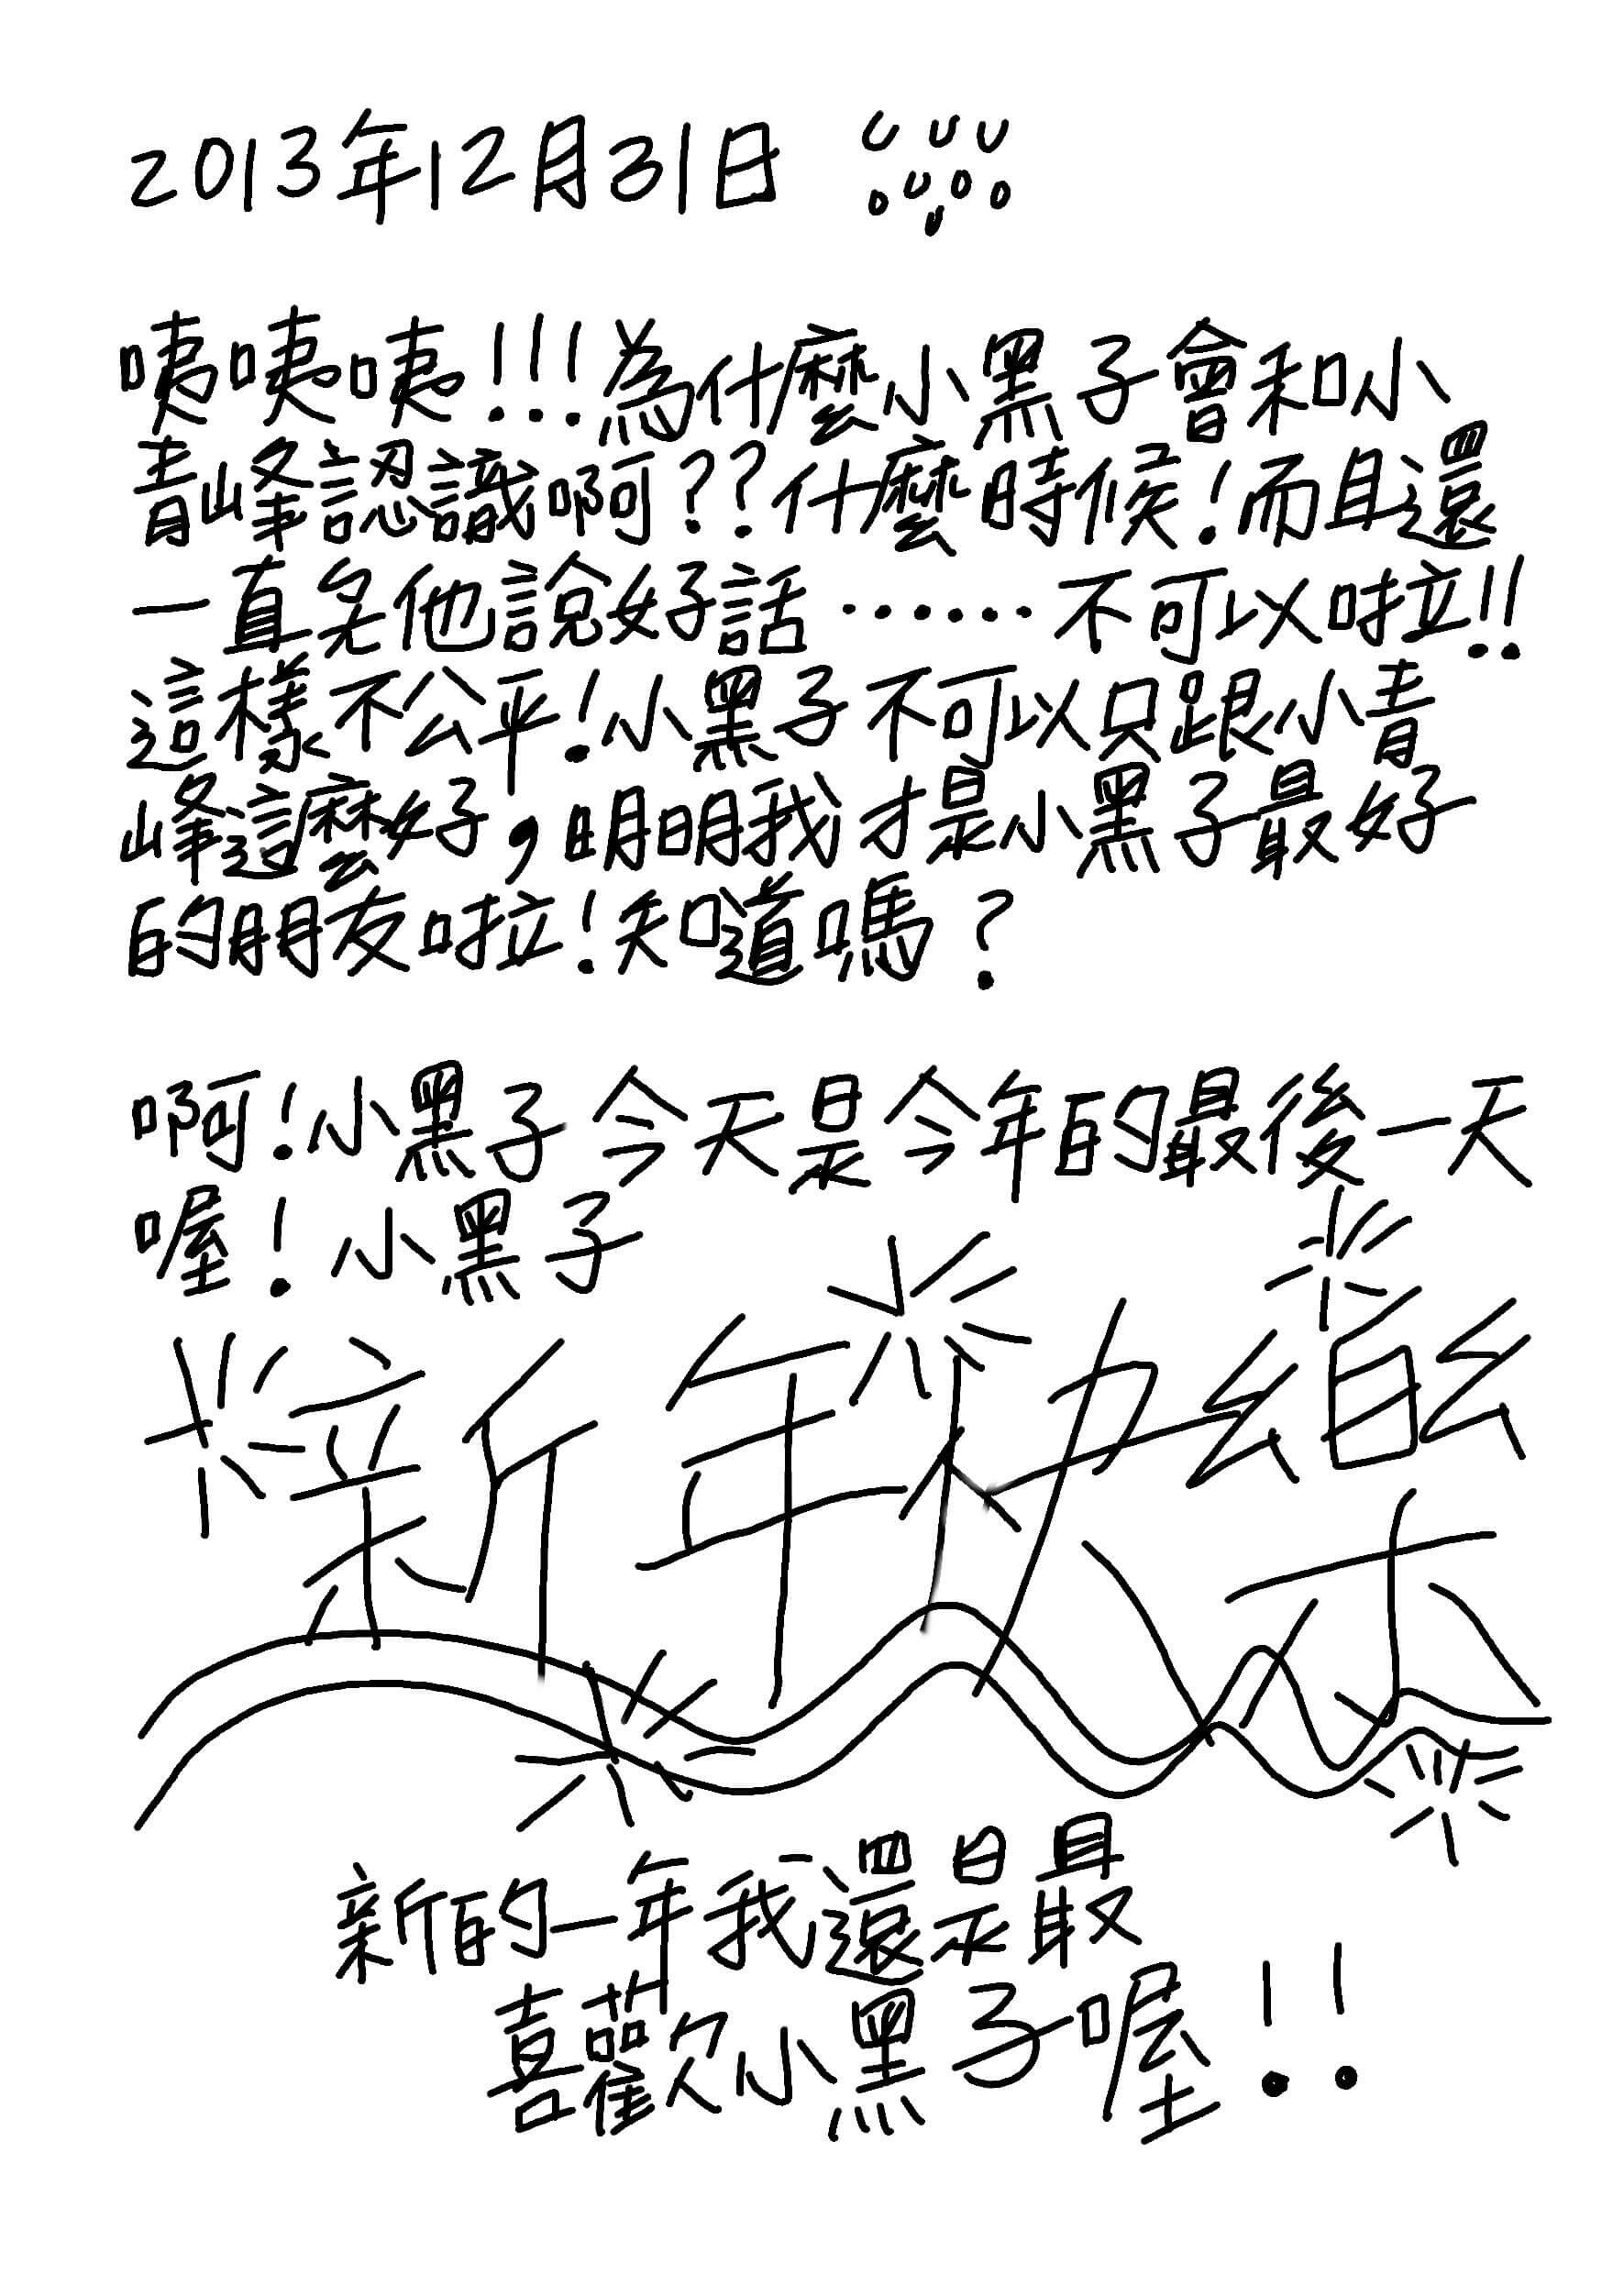 2013年12月31日
咦咦咦!!!為什麼小黑子會和小
青峰認識啊??什麼時候!而且還
一直幫他說好話⋯⋯不可以啦!!
這樣不公平!小黑子不可以只跟小青
峰這麼好,明明我才是小黑子最好
的朋友啦!知道嗎?
啊!小黑子今天是今年的最後一天
喔!小黑子
新年快樂
新的一年我還是最
喜歡小黑子喔!!